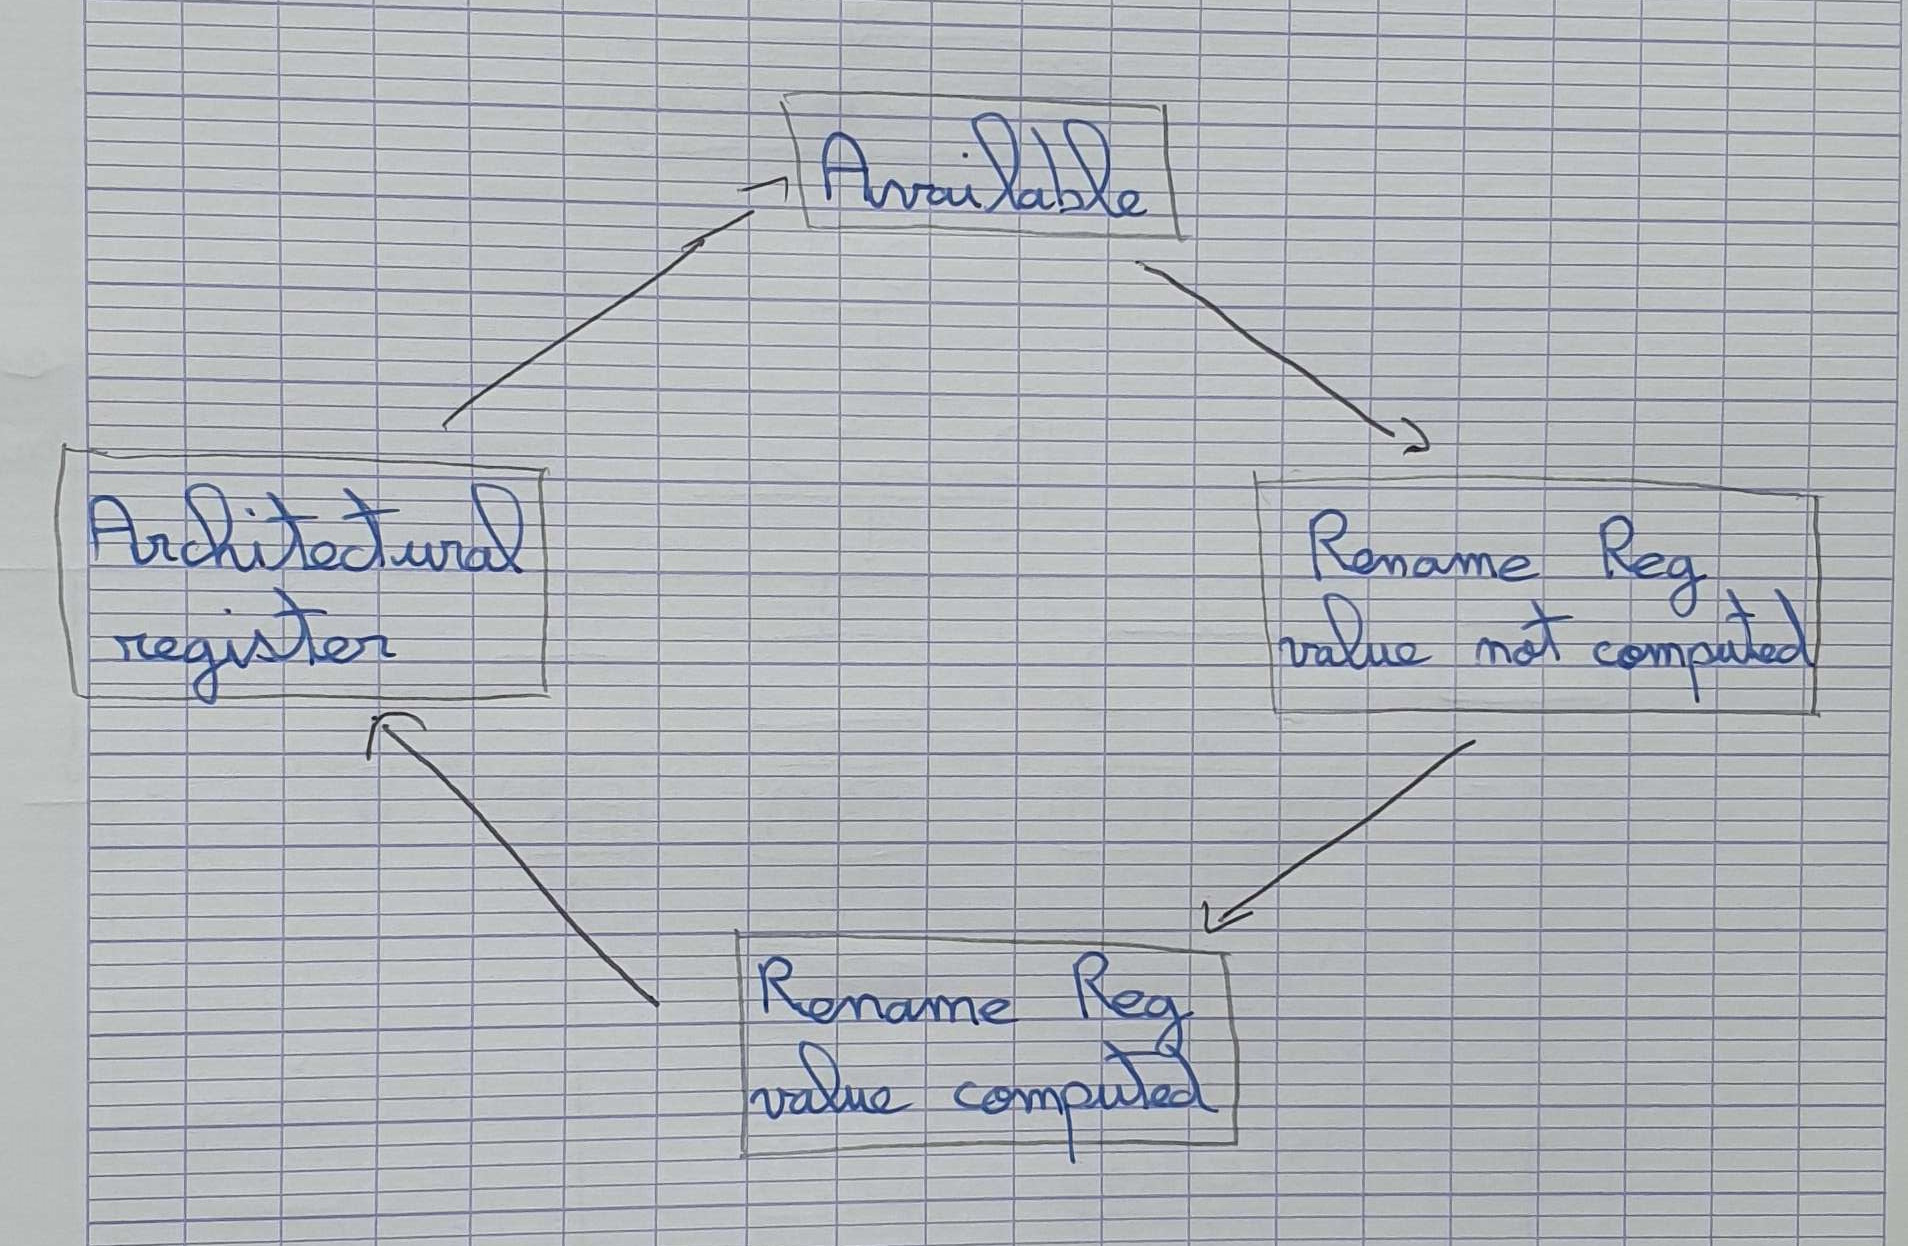 Available
Architectural
register
Rename Reg
value not computed
Rename Reg
value computed